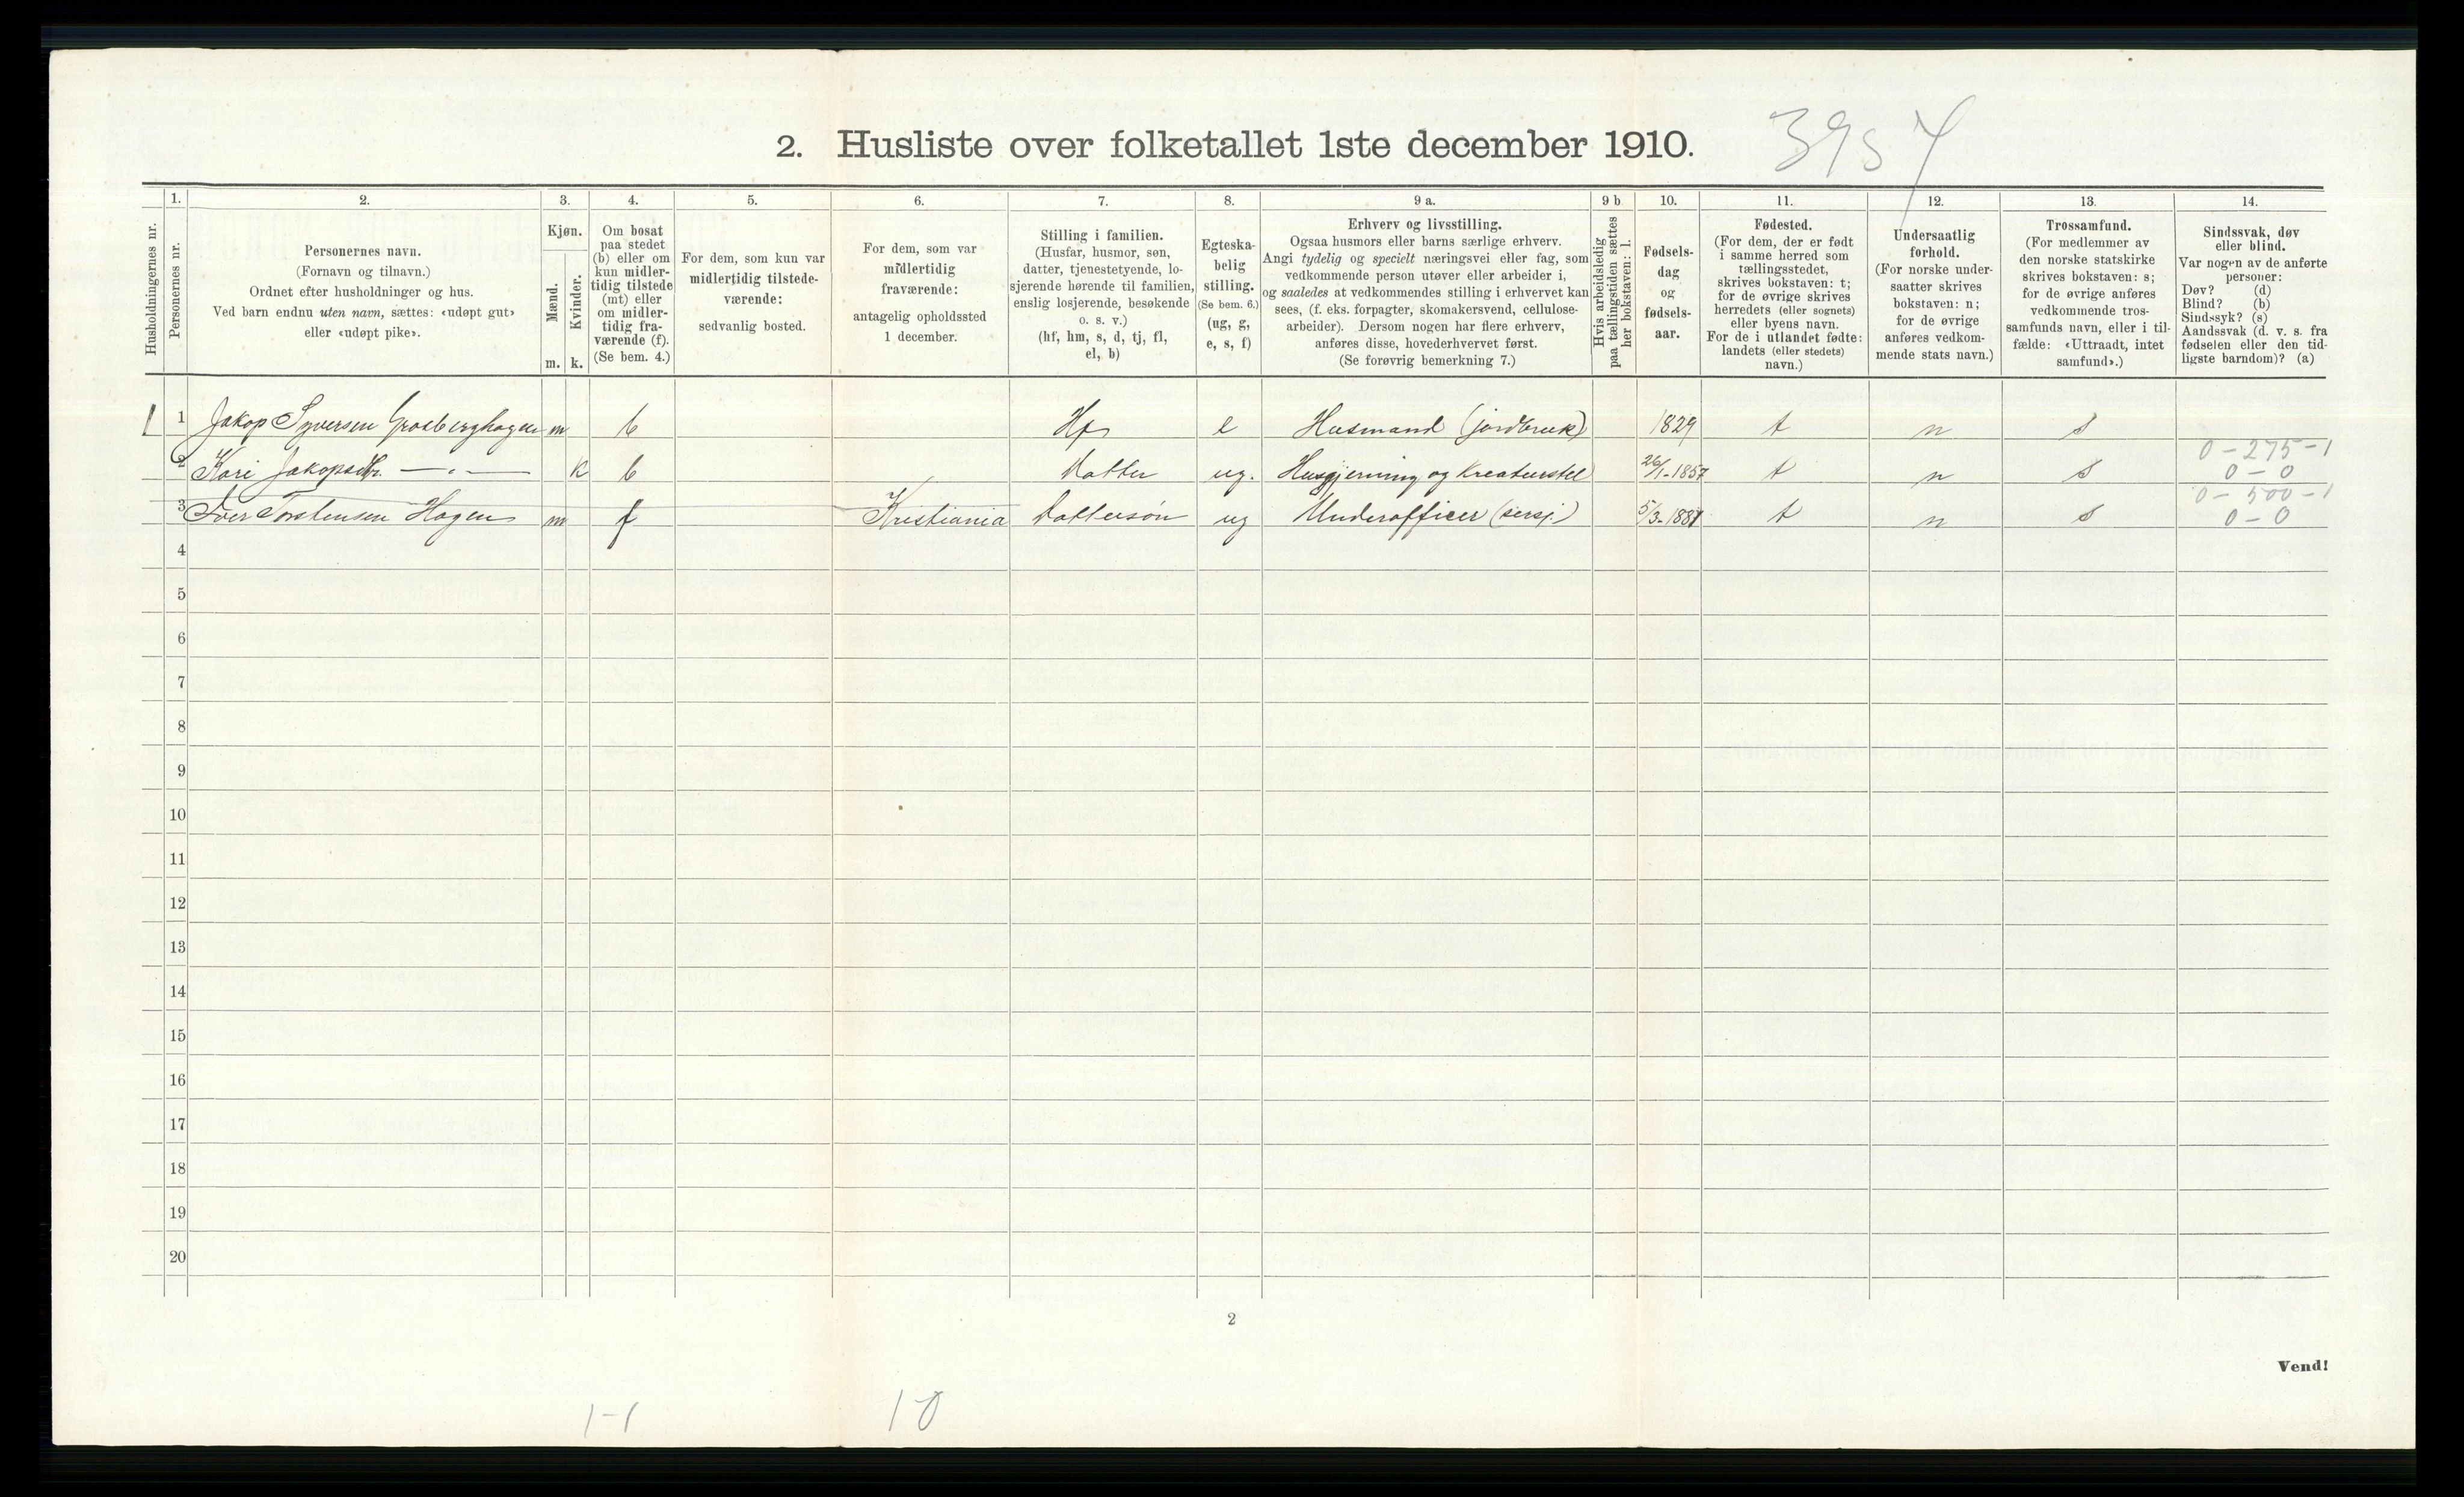 2. Husliste over folketallet 1ste december 1910. 3957
Husholdningernes nr.
1.
Personernes nr.
2.
Personernes navn.
(Fornavn og tilnavn.)
Ordnet efter husholdninger og hus.
Ved barn endnu uten navn, sættes: «udøpt gut»
eller «udøpt pike».
3.
Kjøn.
Mænd.
Kvinder.
m. k.
4.
Om bosat
paa stedet
(b) eller om
kun midler-
tidig tilstede
(mt) eller
om midler-
tidig fra-
værende (f).
(Se bem. 4.)
5.
For dem, som kun var
midlertidig tilstede-
værende:
sedvanlig bosted.
6.
For dem, som var
midlertidig
fraværende:
antagelig opholdssted
1 december.
7.
Stilling i familien.
(Husfar, husmor, søn,
datter, tjenestetyende, lo-
sjerende hørende til familien,
enslig losjerende, besøkende
o. s. v.)
(hf, hm, s, d, tj, fl,
el, b)
8.
Egteska-
belig
stilling.
(Se bem. 6.)
(ug, g,
e, s, f)
9 a.
Erhverv og livsstilling.
Ogsaa husmors eller barns særlige erhverv.
Angi tydelig og specielt næringsvei eller fag, som
vedkommende person utøver eller arbeider i,
og saaledes at vedkommendes stilling i erhvervet kan
sees, (f. eks. forpagter, skomakersvend, cellulose-
arbeider). Dersom nogen har flere erhverv,
anføres disse, hovederhvervet først.
(Se forøvrig bemerkning 7.)
9 b
Hvis arbeidsledig
paa tællingstiden sættes
her bokstaven: l.
10.
Fødsels-
dag
og
fødsels-
aar.
11.
Fødested.
(For dem, der er født
i samme herred som
tællingsstedet,
skrives bokstaven: t;
for de øvrige skrives
herredets (eller sognets)
eller byens navn.
For de i utlandet fødte:
landets (eller stedets)
navn.)
12.
Undersaatlig
forhold.
(For norske under-
saatter skrives
bokstaven: n;
for de øvrige
anføres vedkom-
mende stats navn.)
13.
Trossamfund.
(For medlemmer av
den norske statskirke
skrives bokstaven: s;
for de øvrige anføres
vedkommende tros-
samfunds navn, eller i til-
fælde: «Uttraadt, intet
samfund».)
14.
Sindssvak, døv
eller blind.
Var nogen av de anførte
personer:
Døv? (d)
Blind? (b)
Sindssyk? (s)
Aandssvak (d. v. s. fra
fødselen eller den tid-
ligste barndom)? (a)
1 1 Jakop Syversen Grosberghagen m b Hf e Husmand (jordbruk) 1829 t n s
0-275-1
2 Kari Jakopsdtr. —„— k b Datter ug. Husgjerning og kreaturstel 26/1-1857 t n s 0-0
0-500-1
3 Iver Torstensen Hagen m f Kristiania Dattersøn ug Underofficer (sersj.) 5/3-1881 t n s 0-0
4
5
6
7
8
9
10
11
12
13
14
15
16
17
18
19
20
2
Vend!
1-1 10